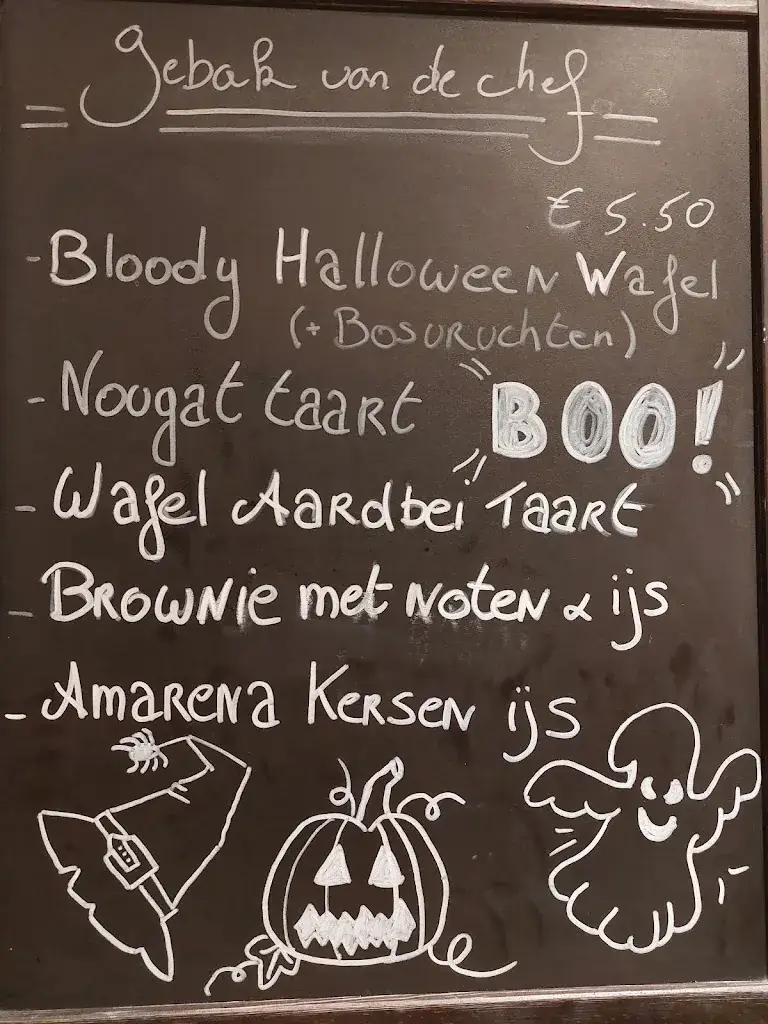 Gebak van de chef
€ 5.50
- Bloody Halloween Wafel
(+ Bosvruchten)
- Nougat taart
BOO!
- Wafel Aardbei Taart
- Brownie met noten & ijs
- Amarena Kersen ijs